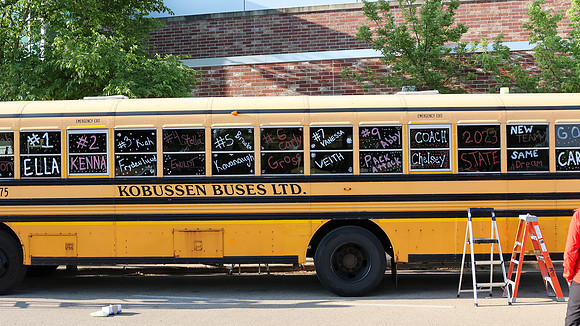 EMERGENCY EXIT
EMERGENCY EXIT
#1
ELLA
#2
KENNA
#3
#5
Kavanaugh
#6
Gross
#7 VANESSA
VEITH
#9 Abby
PACK
ATTACK
COACH
Chelsey
2023
STATE
NEW
TEAM
SAME
Dream
GO
CAR
75
KOBUSSEN BUSES LTD.